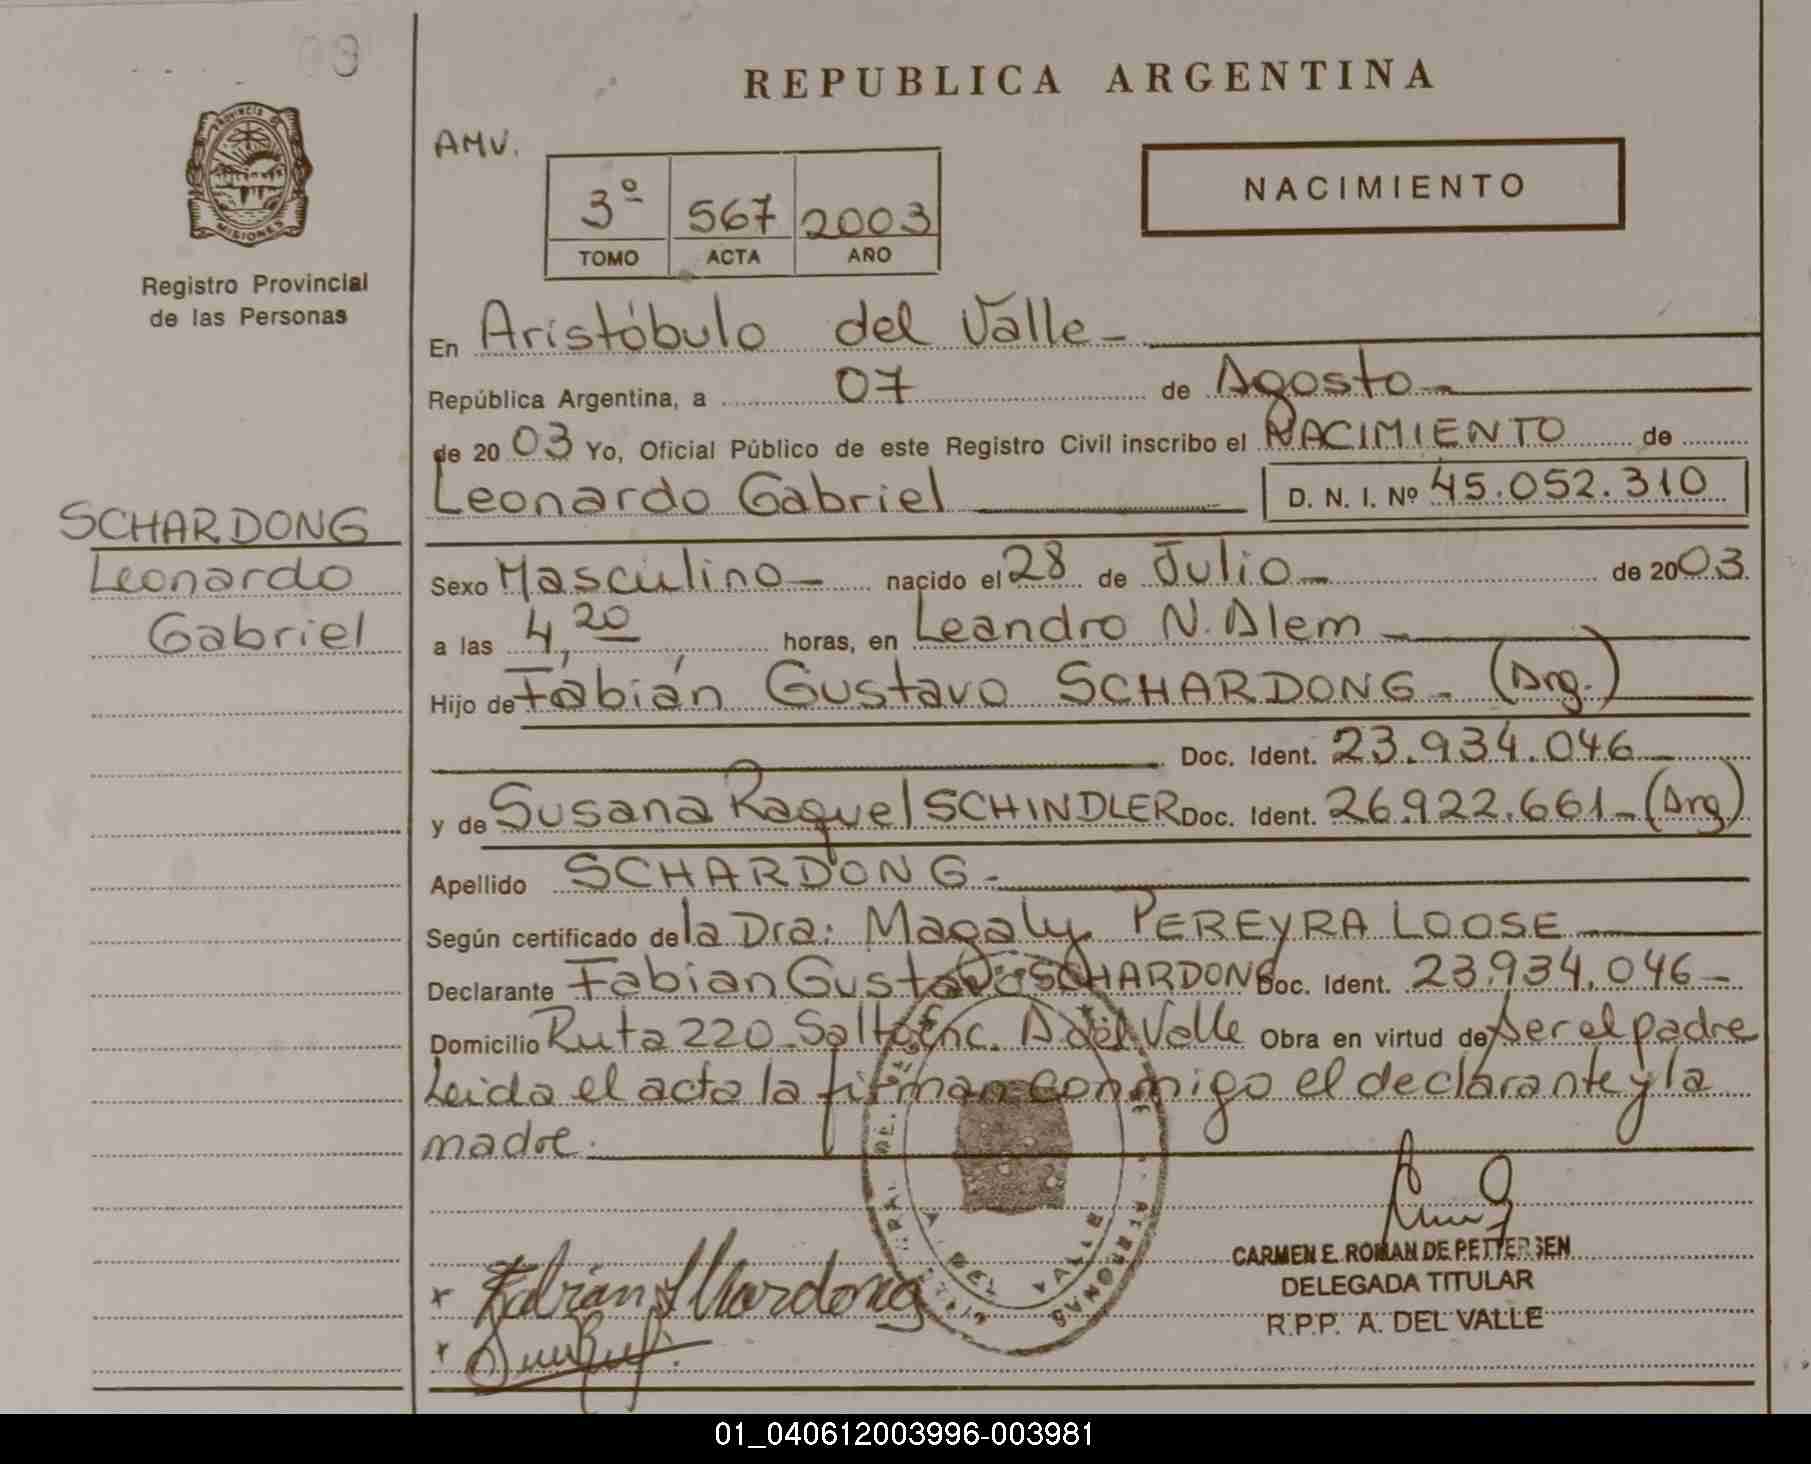 03
REPUBLICA ARGENTINA
PROVINCIA DE
MISIONES
Registro Provincial
de las Personas
AMV.
3º 567 2003
TOMO ACTA AÑO
NACIMIENTO
En Aristóbulo del Valle
República Argentina, a 07 de Agosto
de 2003 Yo, Oficial Público de este Registro Civil inscribo el NACIMIENTO de
Leonardo Gabriel D. N. I. Nº 45.052.310
SCHARDONG
Leonardo
Gabriel
Sexo Masculino nacido el 28 de Julio de 2003
a las 4,20 horas, en Leandro N. Alem
Hijo de Fabián Gustavo SCHARDONG (Arg.)
Doc. Ident. 23.934.046
y de Susana Raquel SCHINDLER Doc. Ident. 26.922.661 (Arg)
Apellido SCHARDONG
Según certificado de la Dra: Magaly PEREYRA LOOSE
Declarante Fabian Gustavo SCHARDONG Doc. Ident. 23.934.046
Domicilio Ruta 220 Salto Enc. A del Valle Obra en virtud de ser el padre
Leida el acta la firman conmigo el declarante y la
madre.
CARMEN E. ROMAN DE PETTERSEN
DELEGADA TITULAR
R.P.P. A. DEL VALLE
x Fabian Schardong
x
DEL VALLE
01_040612003996-003981